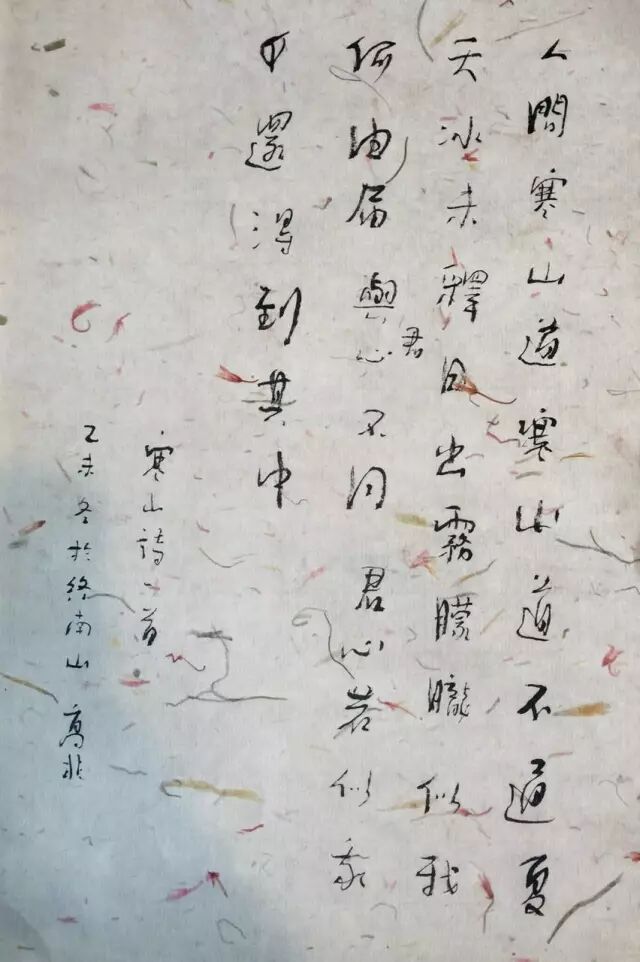 人間寒山道寒山道不通夏
天冰未釋日出霧朦朧似我
何由屆與君心不同君心若似我
中還得到其中
寒山詩一首
乙未冬於終南山 高非